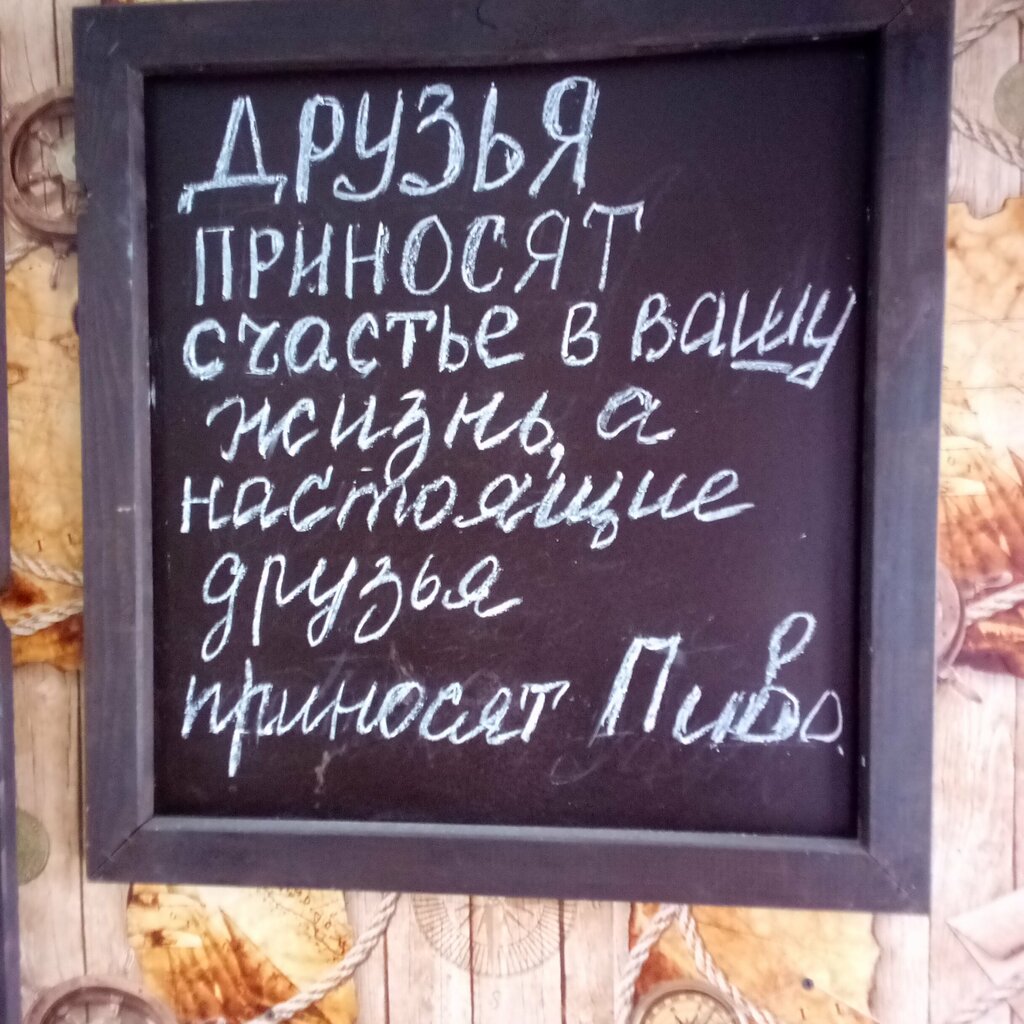 ДРУЗЬЯ
ПРИНОСЯТ
счастье в вашу
жизнь, а
настоящие
друзья
приносят Пиво.